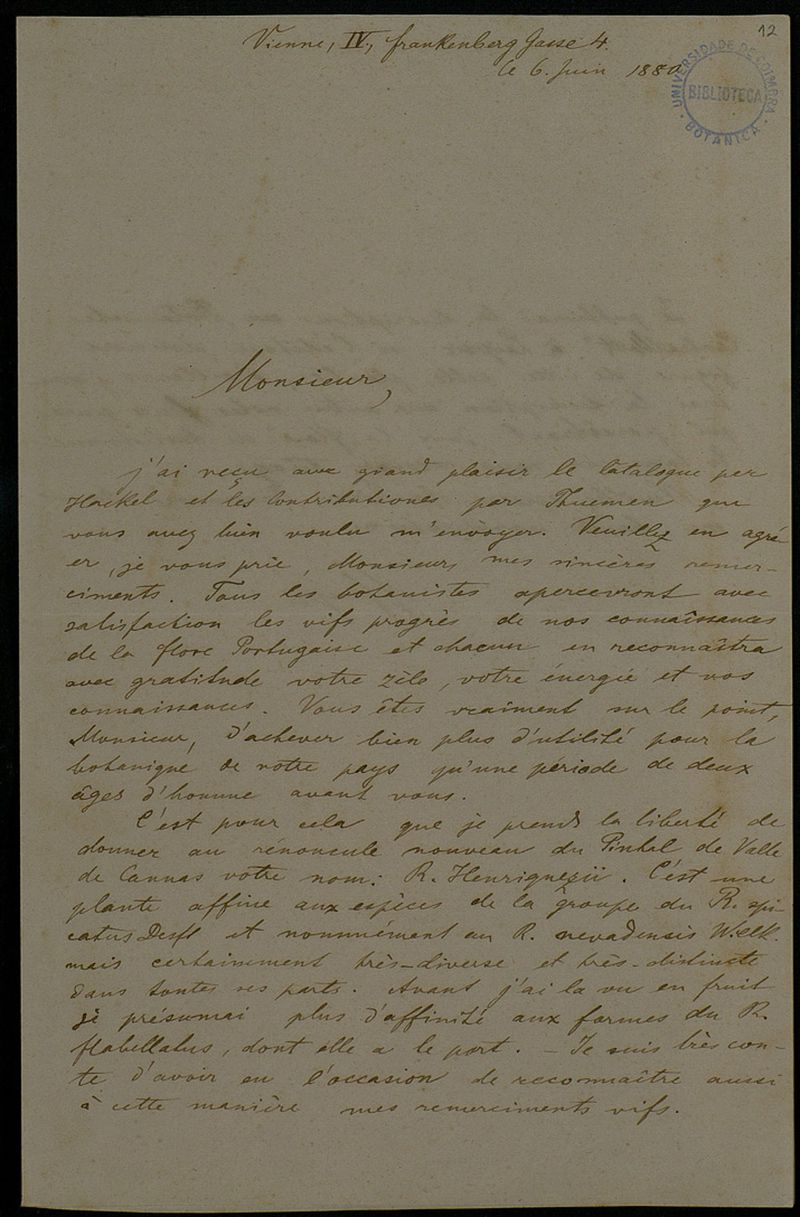 12
Vienne, IV., frankenberg Gasse 4.
le 6. Juin 1880
UNIVERSIDADE DE COIMBRA
BIBLIOTECA
BOTANICA
Monsieur,
j'ai reçu avec grand plaisir le Catalogue per
Hackel et les Contributiones per Thuemen que
vous avez bien voulu m'envoyer. Veuillez en agré-
er, je vous prie, Monsieur, mes sincères remer-
ciments. Tous les botanistes apercevront avec
satisfaction les vifs progrès de nos connaîssances
de la flore Portugaise et chacun en reconnaîtra
avec gratitude votre zèle, votre énergie et vos
connaissances. Vous êtes vraiment sur le point,
Monsieur, d'achever bien plus d'utilité pour la
botanique de votre pays qu'une période de deux
âges d'homme avant vous.
C'est pour cela que je prends la liberté de
donner au rénoncule nouveau du Pinhal de Valle
de Cannas votre nom: R. Henriquesii. C'est une
plante affine aux espèces de la groupe du R. spi-
catus Desf. et nommément au R. nevadensis Willk.
mais certainement très-diverse et très-distincte
dans toutes ses parts. Avant j'ai la vu en fruit
je présumai plus d'affinité aux formes du R.
flabellatus, dont elle a le port. – Je suis très con-
te d'avoir eu l'occasion de reconnaître aussi
à cette manière mes remerciments vifs.